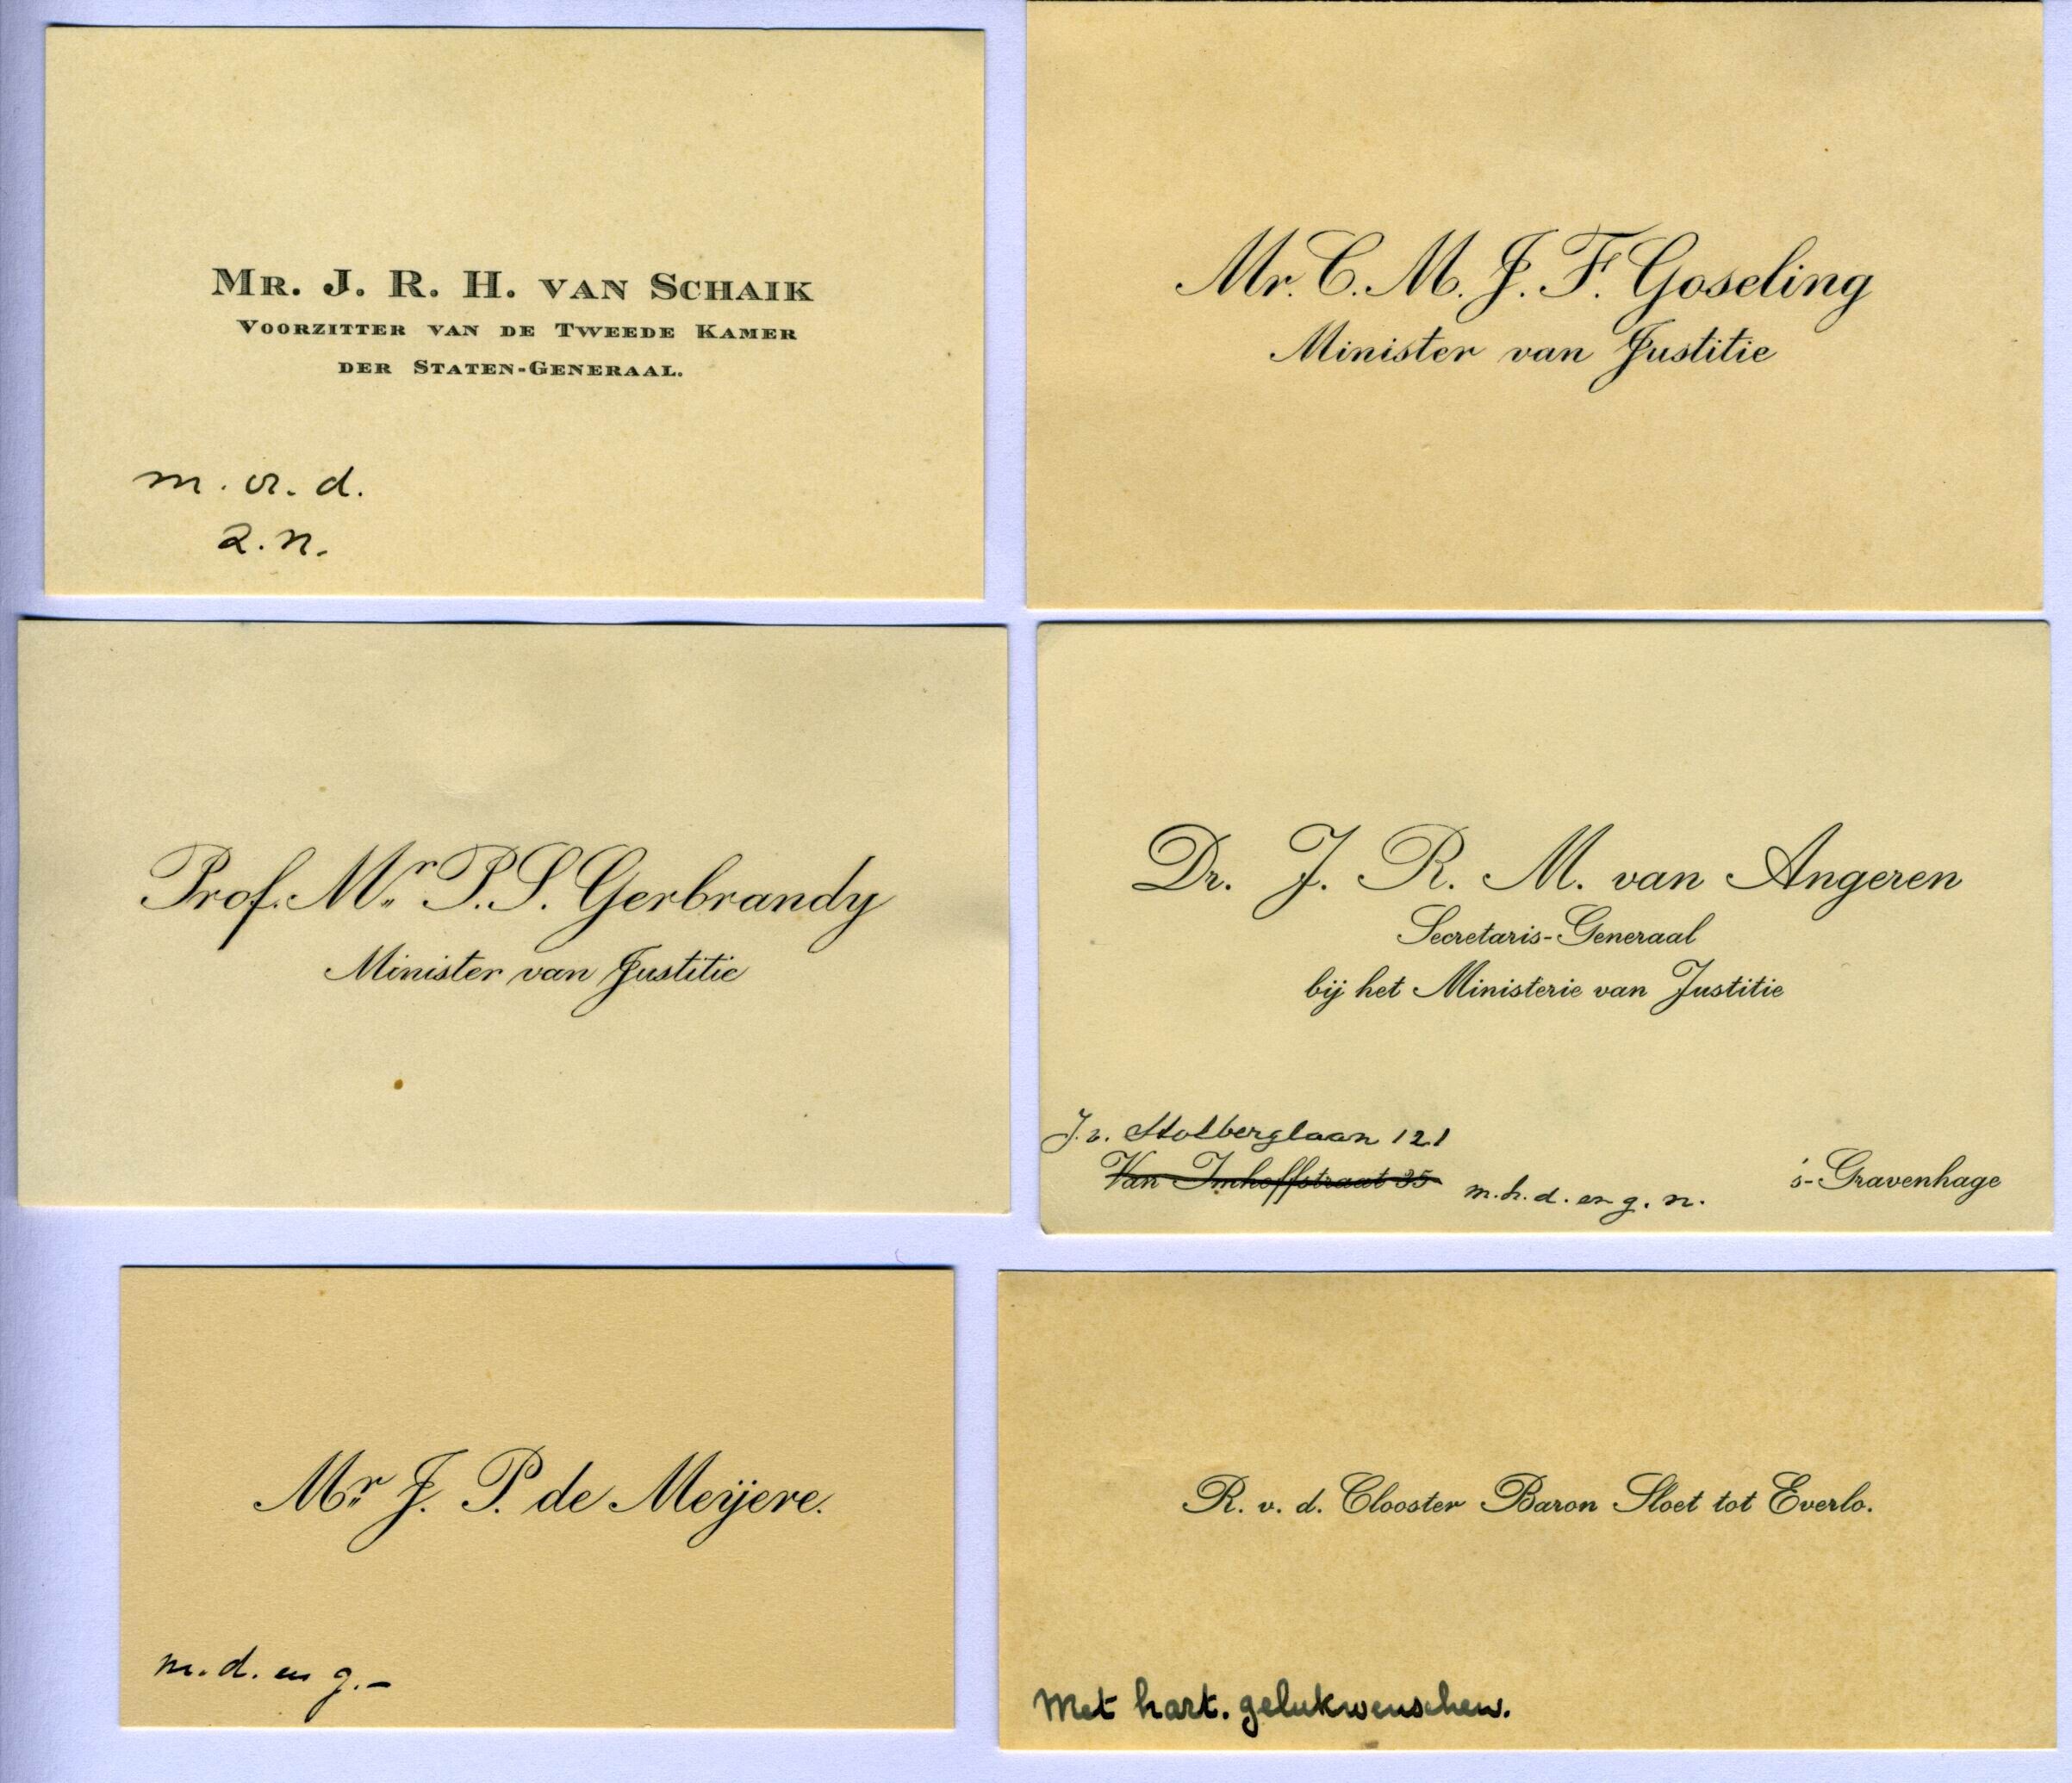 Mr. J. R. H. van Schaik
Voorzitter van de Tweede Kamer
der Staten-Generaal.
m. v. d.
a. n.
Mr. C. M. J. F. Goseling
Minister van Justitie
Prof. Mr. P. S. Gerbrandy
Minister van Justitie
Dr. J. R. M. van Angeren
Secretaris-Generaal
bij het Ministerie van Justitie
J. v. Stolberglaan 121
Van Imhoffstraat 35
m. h. d. en g. n.
's-Gravenhage
Mr J. P. de Meijere.
m. d. en g. –
R. v. d. Clooster Baron Sloet tot Everlo.
Met hart. gelukwenschen.